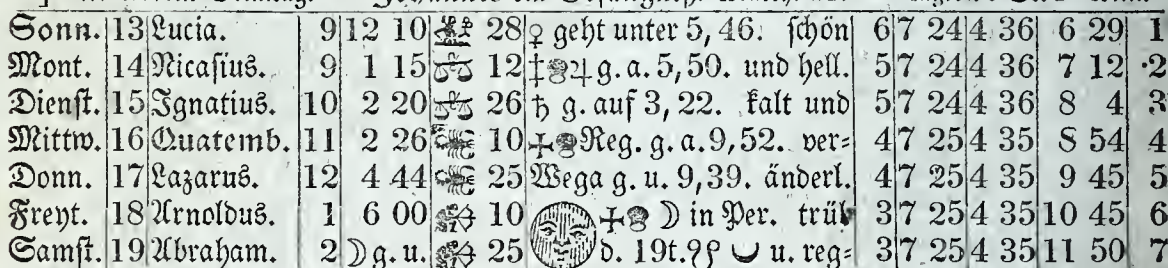 Sonn. 13 Lucia. 9 12 10 28 ♀ geht unter 5, 46. schön 6 7 24 4 36 6 29 1
Mont. 14 Nicasius. 9 1 15 12 ♃ g. a. 5,50. und hell. 5 7 24 4 36 7 12 2
Dienst. 15 Ignatius. 10 2 20 26 ♄ g. auf 3, 22. kalt und 5 7 24 4 36 8 4 3
Mittw. 16 Quatemb. 11 2 26 10 Reg. g. a. 9,52. ver= 4 7 25 4 35 8 54 4
Donn. 17 Lazarus. 12 4 44 25 Wega g. u. 9,39. änderl. 4 7 25 4 35 9 45 5
Freyt. 18 Arnoldus. 1 6 00 10 ☽ in Per. trüb 3 7 25 4 35 10 45 6
Samst. 19 Abraham. 2 ☽ g. u. 25 d. 19t. u. reg= 3 7 25 4 35 11 50 7